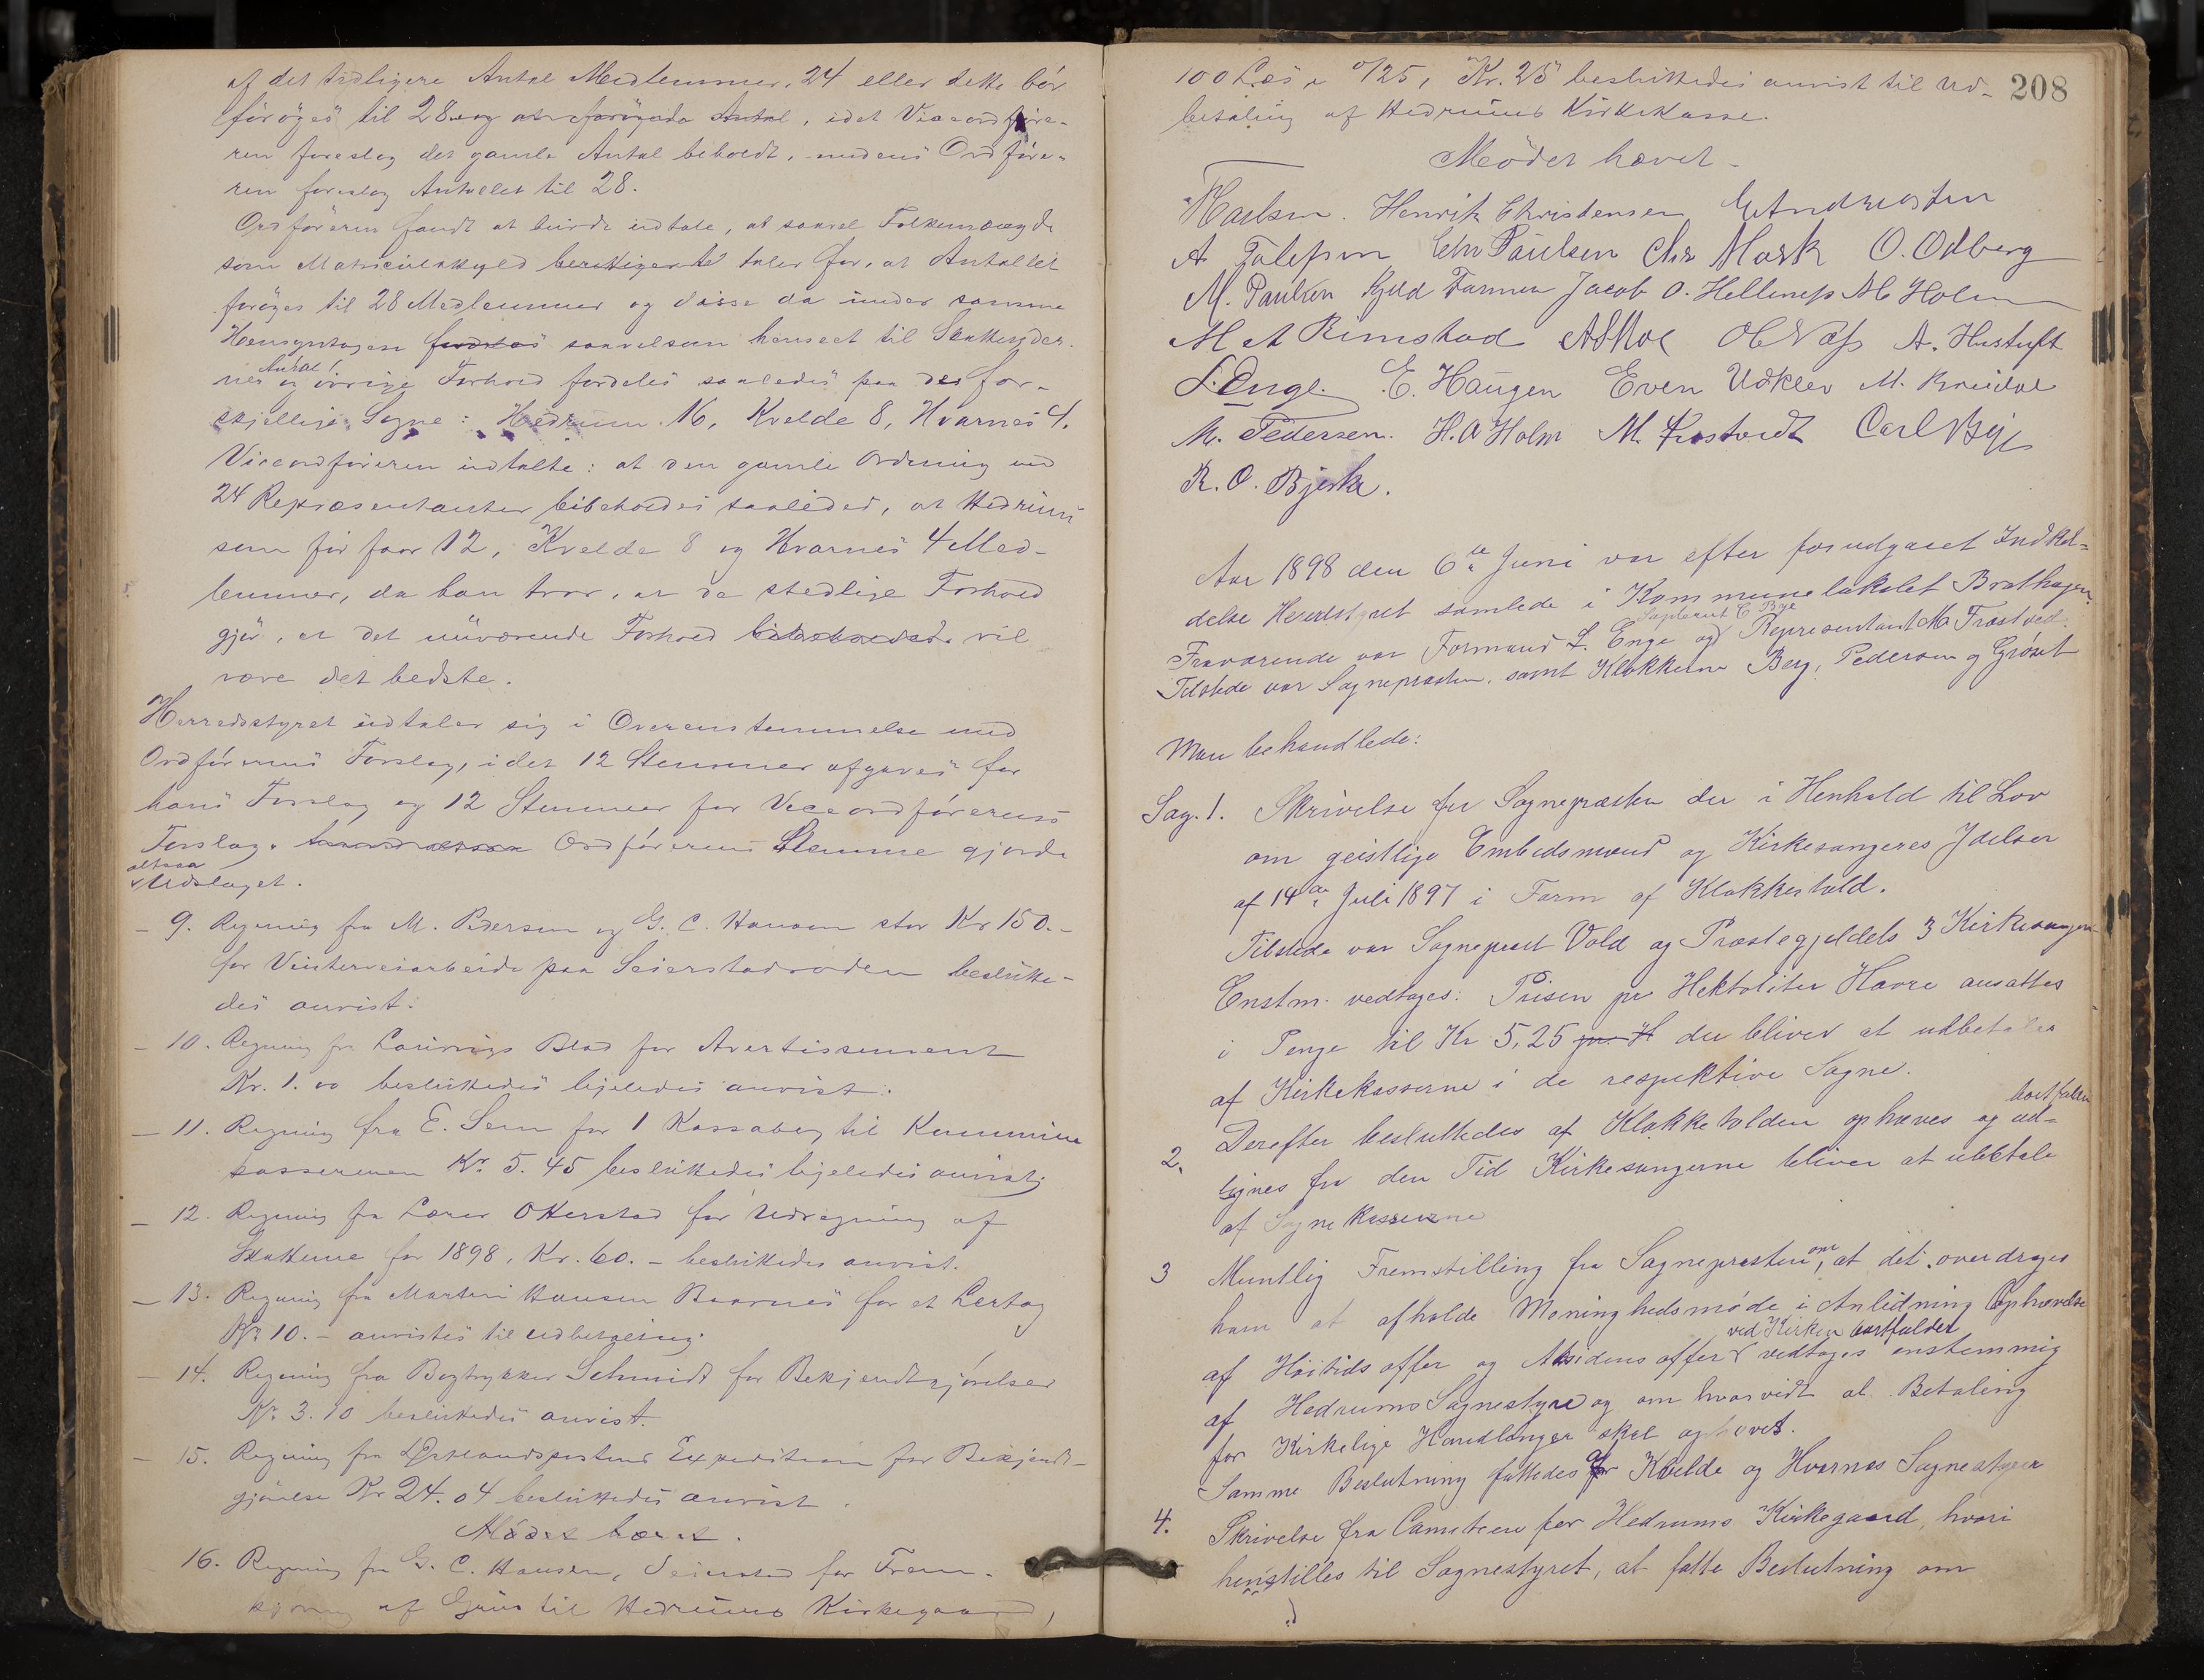 af det tidligere Antal Medlemmer, 24 eller dette bør
forøges til 28 og at forøgede Antal, idet Viceordføre-
ren foreslog det gamle Antal beholdt, medens Ordføre-
ren foreslog Antallet til 28.
Ordføreren fandt at burde udtale, at saavel Folkemængde
som Matriculskyld berettigende taler for, at Antallet
forøges til 28 Medlemmer og disse da under samme
Hensyntagen fordeles saavelsom henseet til Skatteyder-
nes Antal og øvrige Forhold fordeles saaledes paa de for-
skjellige Sogne: Hedrum 16, Kvelde 8, Hvarnes 4.
Viceordføreren udtalte: at den gamle Ordning med
24 Repræsentanter bibeholdes saaledes, at Hedrum
som før faar 12, Kvelde 8 og Hvarnes 4 Med-
lemmer, da han tror, at de stedlige Forhold
gjør, at det nuværende Forhold vil
være det bedste.
Herredsstyret udtaler sig i Overensstemmelse med
Ordførerens Forslag, idet 12 Stemmer afgaves for
hans Forslag og 12 Stemmer for Viceordførerens
Forslag. Ordførerens Stemme gjorde
altsaa
Udslaget.
- 9. Regning fra M. Pedersen og G. C. Hansen stor Kr 150.-
for Vinterveiarbeide paa Seierstadroden beslutte-
des anvist.
- 10. Regning fra Laurvigs Blad for Avertissement
Kr. 1.00 besluttedes ligeledes anvist.
- 11. Regning fra E. Sem for 1 Kassabog til Kommune
kassereren Kr. 5.45 besluttedes ligeledes anvist.
- 12. Regning fra Lærer Otterstad for Udregning af
Skatterne for 1898, Kr. 60.- besluttedes anvist.
- 13. Regning fra Martin Hansen Baarnes for et Lertag
Kr 10.- anvistes til Udbetaling.
- 14. Regning fra Bogtrykker Schmidt for Bekjendtgjørelser
Kr. 3.10 besluttedes anvist.
- 15. Regning fra Østlandspostens Expedition for Bekjendt-
gjørelse Kr 24.04 besluttedes anvist.
Mødet hævet.
16. Regning fra G. C. Hansen, Seierstad for Frem-
kjøring af Grus til Hedrums Kirkegaard,
208
100 Læs a 0/25, Kr. 25 besluttedes anvist til Ud-
betaling af Hedrums Kirkekasse.
Mødet hævet-
Karlsen. Henrik Christensen Andreasen
A Tolefsen Chr Paulsen Chr Mørk O. Odberg
M. Paulsen Kjeld Farmen Jacob O. Hellenes M Holm
M A Rimstad A Moe Ol Næss A. Hustuft
L. Enge. E. Haugen Even Udklev M. Breidal
M. Pedersen. H. A Holm M. Trostvedt Carl Bye
R. O. Bjerke.
Aar 1898 den 6te Juni var efter forudgaaet Indkal-
delse Herredstyret samlede i Kommunelokalet Brathagen.
Supleant C Bye
Fraværende var Formand L. Enge og Representant M Trostved.
Tilstede var Sognepræsten, samt Klokkerne Berg, Pedersen og Grøset
Man behandlede:
Sag. 1. Skrivelse fra Sognepræsten der i Henhold til Lov
om geistlige Embedsmænd og Kirkesangeres Ydelser
af 14de Juli 1897 i Form af Klokkertold.
Tilstede var Sogneprest Vold og Præstegjeldets 3 Kirkesangere
Enstm. vedtoges: Prisen pr Hektoliter Havre ansattes
i Penge til Kr 5,25 pr. H der bliver at udbetales
af Kirkekasserne i de respektive Sogne.
bortfalder
2. Derefter besluttedes af Klokketolden ophæves og ud-
lignes fra den Tid Kirkesangerne bliver at udbetale
af Sognekasserne
3 Muntlig Fremstilling fra Sognepresten, om at det overdrages
ham at afholde Meninghedsmøde i Anledning Ophævelse
ved Kirken bortfalder
af Høitids offer og Altidens offer vedtoges enstemmig
af Hedrums Sognestyre og om hvorvidt at Betaling
for Kirkelige Handlinger skal ophøves.
Samme Beslutning fattedes for Kvelde og Hvarnes Sognestyrer
4. Skrivelse fra Camiteen for Hedrums Kirkegaard, hvori
henstilles til Sognestyret, at fatte Beslutning om